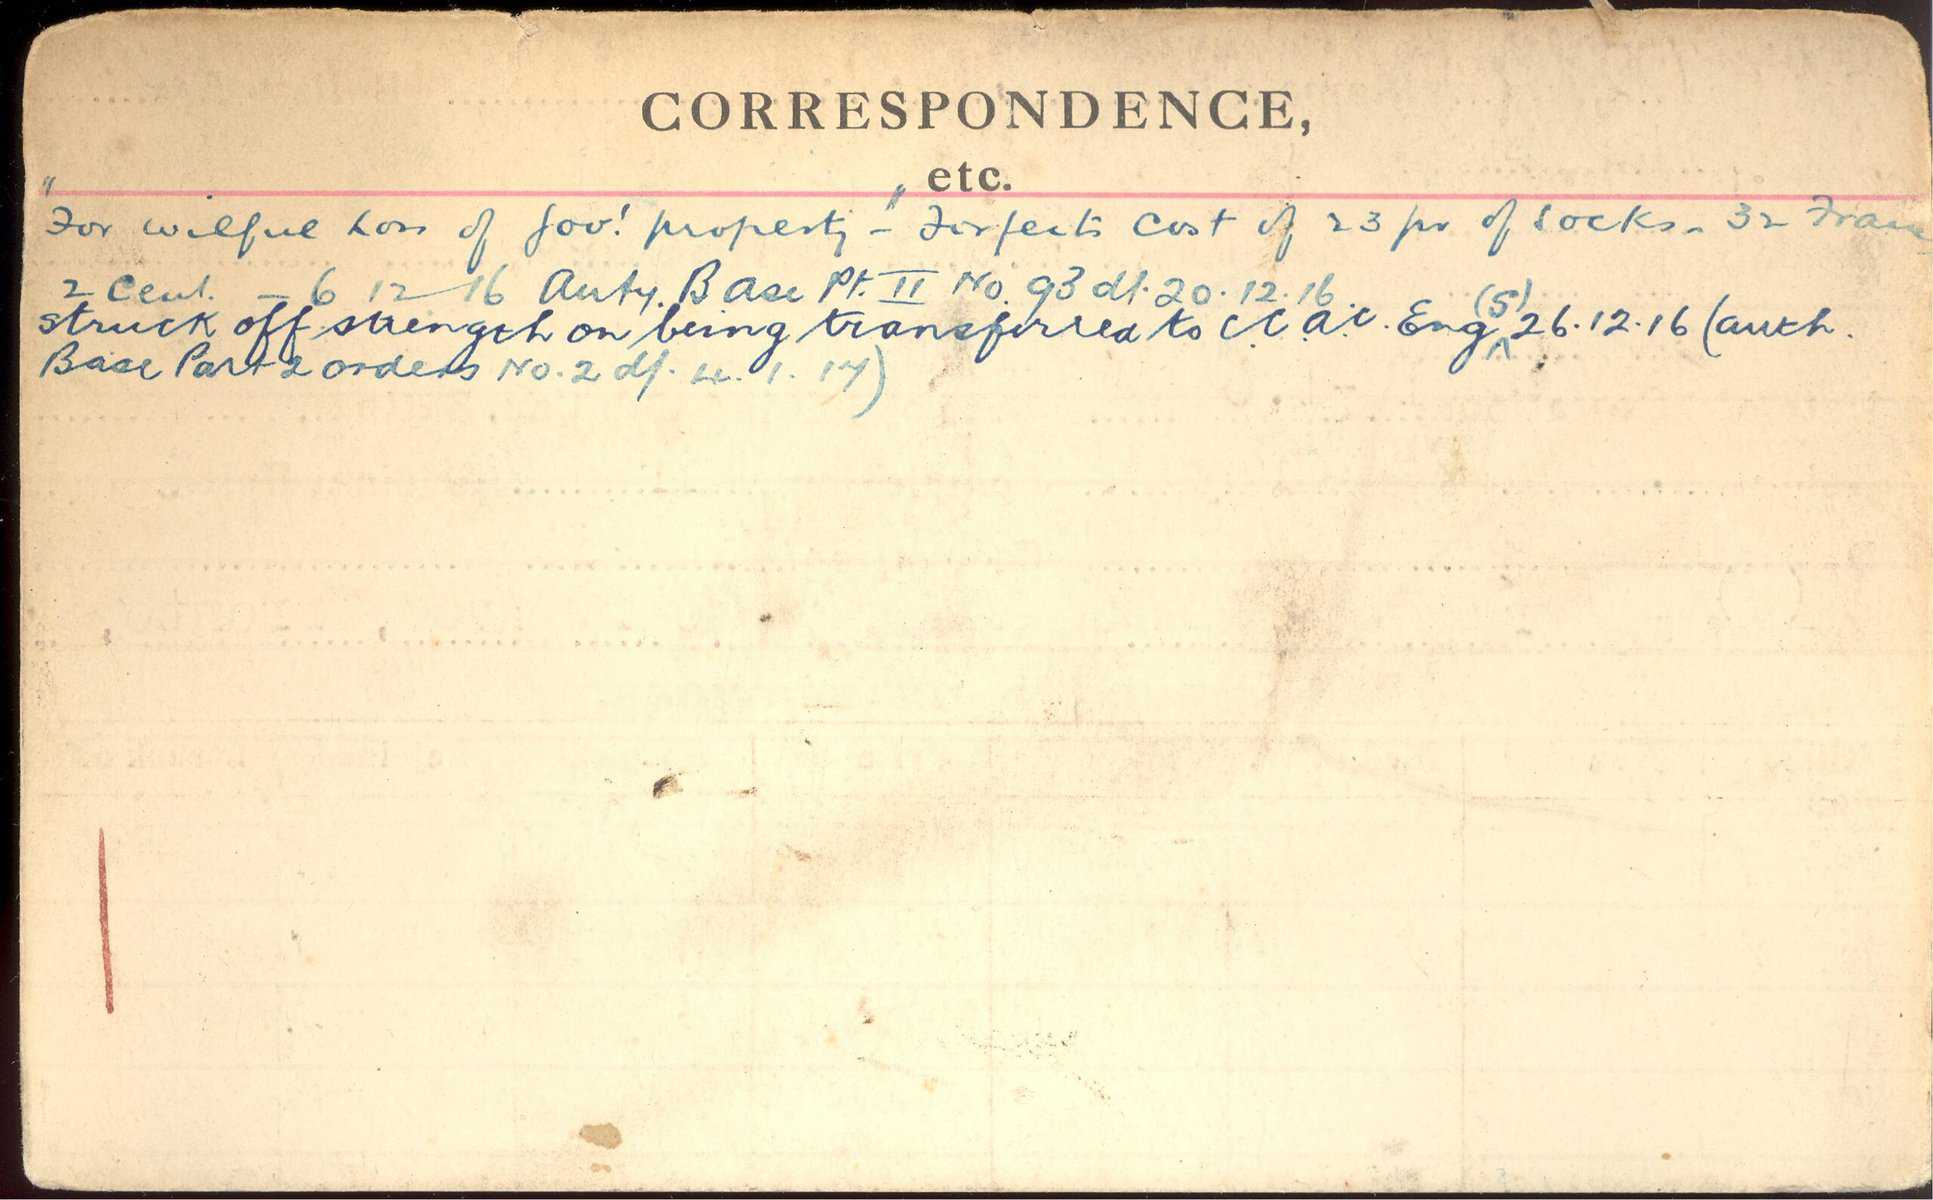 CORRESPONDENCE,
etc.
"For wilful Loss of Gov! property" - Forfeits Cost of 23 pr of Socks. 32 Franc
2 Cent. - 6 12 16 Auty. Base Pt. II No. 93 dt. 20.12.16.
struck off strength on being transferred to C.C.A.C. Eng (S) 26.12.16 (auth.
Base Part 2 orders No. 2 df. 4. 1. 17)